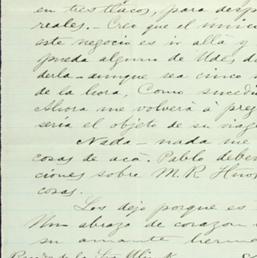 en tres tucos), para desp
reales. — Creo que el único
este negocio es ir allá y
pueda alguno de Udes, di
derla — aunque sea cinco
de la hora, Como sucedi
Ahora me volverá á preg
sería el objeto de su viag
Nada — nada me
cosas de acá. Pablo deben
ciones sobre M. R.
cosas.
Los dejo porque es
Un abrazo de corazon
su amante herma